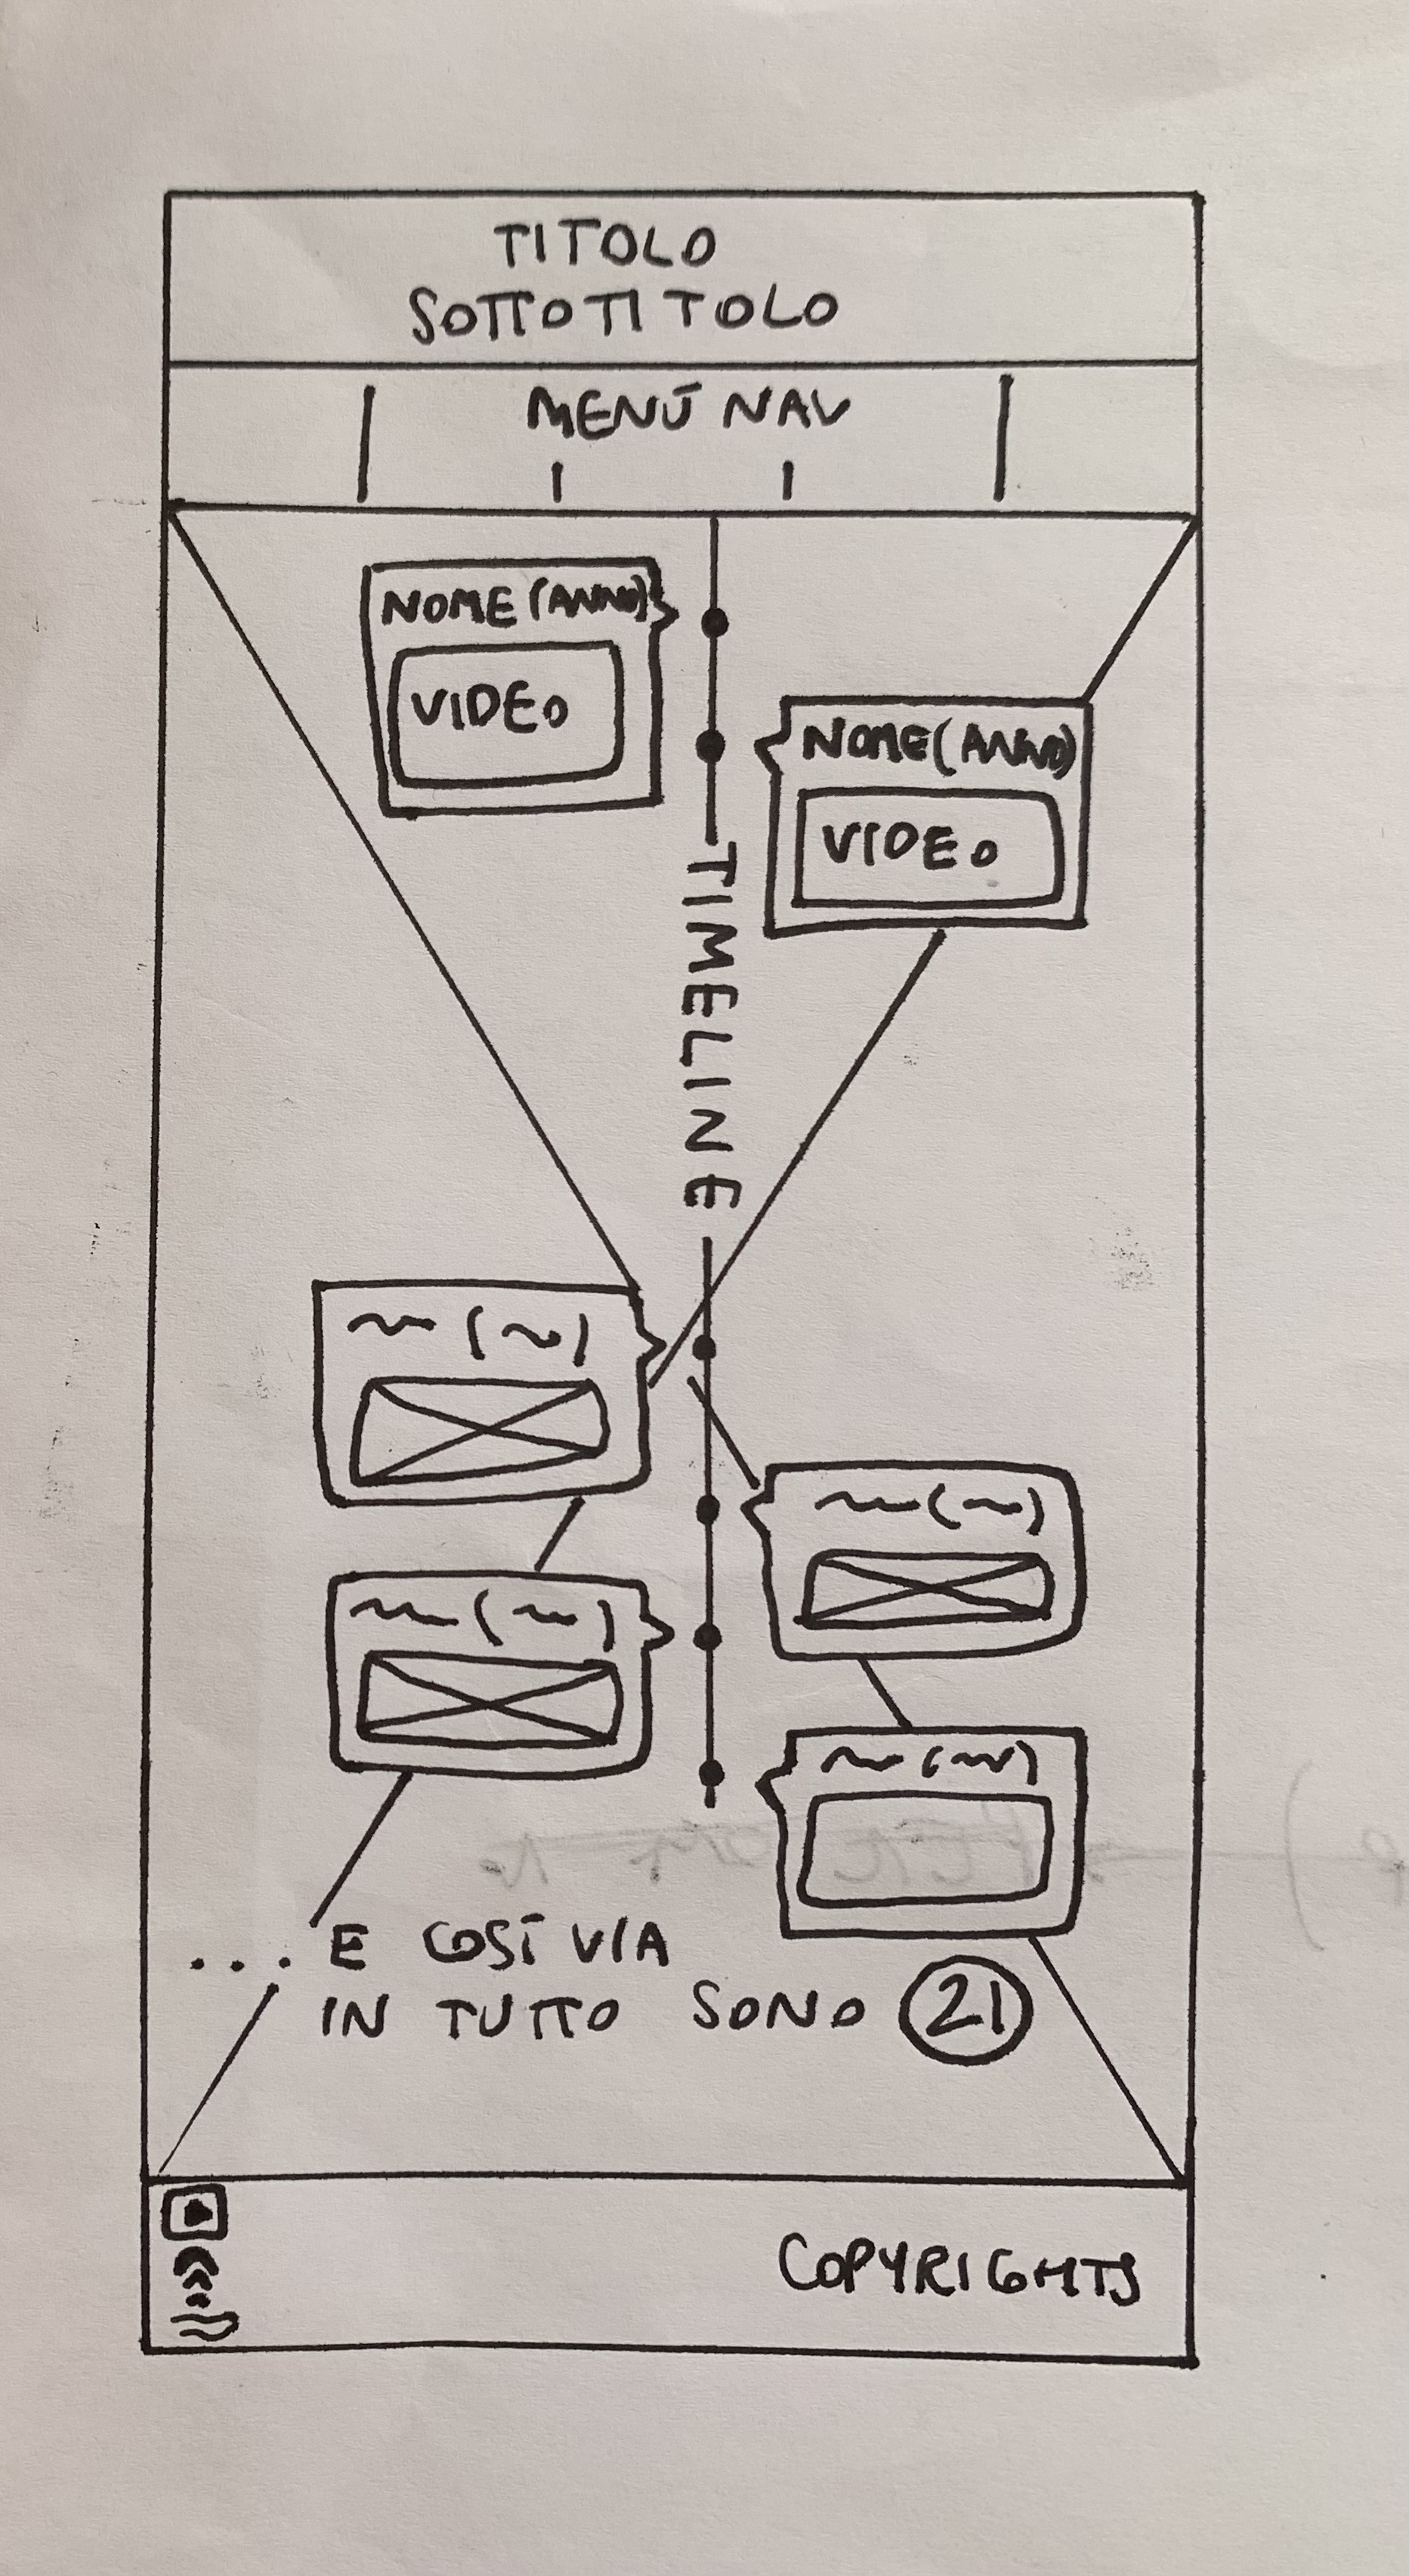 TITOLO
SOTTOTITOLO
MENÚ NAV
NOME (ANNO)
VIDEO
NOME (ANNO)
VIDEO
TIMELINE
... E COSÌ VIA
IN TUTTO SONO 21
COPYRIGHTS